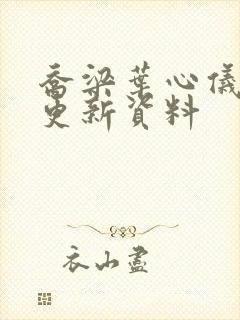 喬梁葉心儀
更新資料
衣山盡